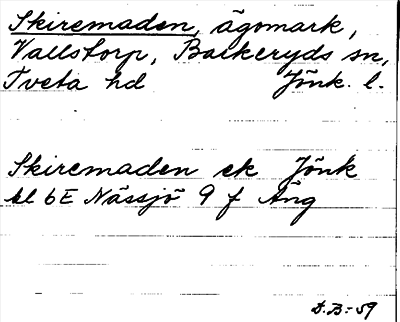 Skiremaden, ägomark,
Vallstorp, Barkeryds sn,
Tveta hd Jönk. l.
Skiremaden ek Jönk
bl 6E Nässjö 9 f Äng
D.B-59